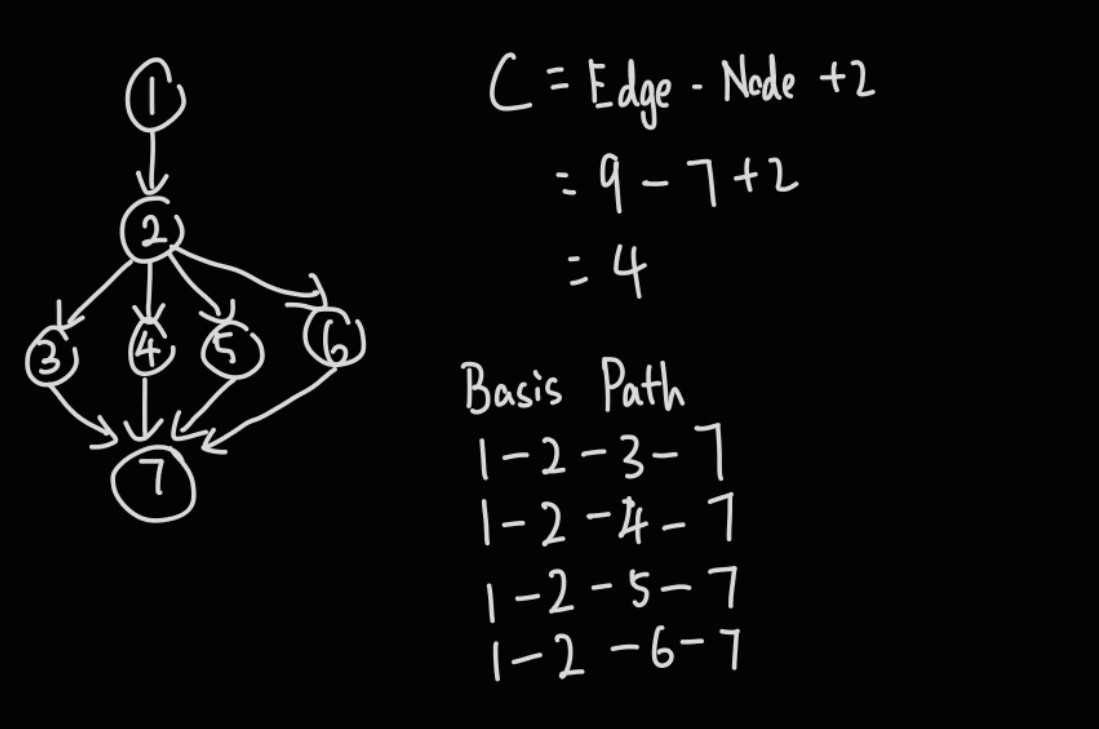 1
2
3 4 5 6
7
C = Edge - Node +2
= 9 - 7 + 2
= 4
Basis Path
1 - 2 - 3 - 7
1 - 2 - 4 - 7
1 - 2 - 5 - 7
1 - 2 - 6 - 7